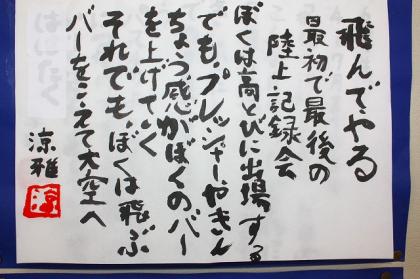 飛んでやる
最初で最後の
陸上記録会
ぼくは高とびに出場する
でも、プレッシャーやきん
ちょう感がぼくのバー
を上げていく
それでも、ぼくは飛ぶ
バーをこえて大空へ
涼雅
涼